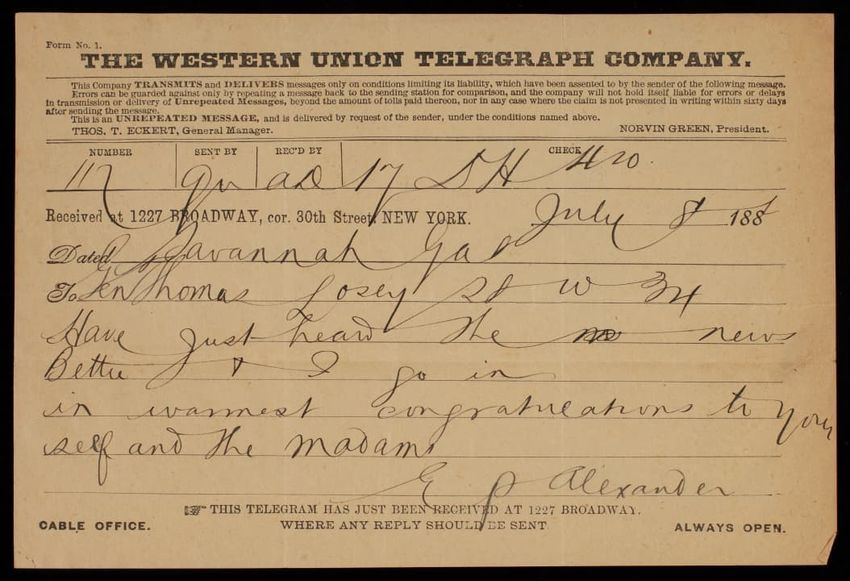 Form No. 1.
THE WESTERN UNION TELEGRAPH COMPANY.
This Company TRANSMITS and DELIVERS messages only on conditions limiting its liability, which have been assented to by the sender of the following message.
Errors can be guarded against only by repeating a message back to the sending station for comparison, and the company will not hold itself liable for errors or delays
in transmission or delivery of Unrepeated Messages, beyond the amount of tolls paid thereon, nor in any case where the claim is not presented in writing within sixty days
after sending the message.
This is an UNREPEATED MESSAGE, and is delivered by request of the sender, under the conditions named above.
THOS. T. ECKERT, General Manager. NORVIN GREEN, President.
NUMBER SENT BY REC'D BY CHECK
117 qu 17 DH
Received at 1227 BROADWAY, cor. 30th Street, NEW YORK. July 8 1888
Dated Savannah Ga 8
To Gen Thomas L Casey St W 34
Have just heard the news
Bettie & I go in
in warmest congratulations to your
self and the madam
E P Alexander
THIS TELEGRAM HAS JUST BEEN RECEIVED AT 1227 BROADWAY.
CABLE OFFICE. WHERE ANY REPLY SHOULD BE SENT. ALWAYS OPEN.